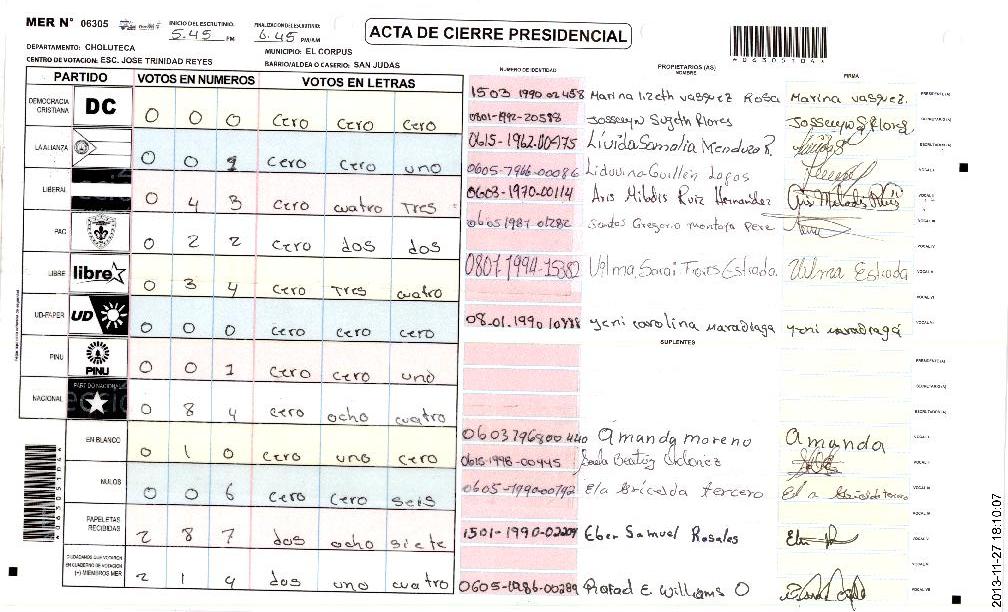 MER N° 06305
INICIO DEL ESCRUTINIO: 5.45 PM
FINALIZACION DEL ESCRUTINIO: 6.45 PM/AM
ACTA DE CIERRE PRESIDENCIAL
*063051041*
DEPARTAMENTO: CHOLUTECA
MUNICIPIO: EL CORPUS
CENTRO DE VOTACION: ESC. JOSE TRINIDAD REYES
BARRIO/ALDEA O CASERIO: SAN JUDAS
PARTIDO VOTOS EN NUMEROS VOTOS EN LETRAS
NUMERO DE IDENTIDAD PROPIETARIOS (AS) NOMBRE FIRMA
DEMOCRACIA CRISTIANA DC 0 0 0 cero cero cero
LA ALIANZA 0 0 1 cero cero uno
LIBERAL 0 4 3 cero cuatro Tres
PAC 0 2 2 cero dos dos
LIBRE libre 0 3 4 cero Tres cuatro
UD-FAPER UD 0 0 0 cero cero cero
PINU PINU 0 0 1 cero cero uno
NACIONAL PARTIDO NACIONAL 0 8 4 cero ocho cuatro
EN BLANCO 0 1 0 cero uno cero
NULOS 0 0 6 cero cero seis
PAPELETAS RECIBIDAS 2 8 7 dos ocho siete
CIUDADANOS QUE VOTARON EN CUADERNO DE VOTACION (+) MIEMBROS MER 2 1 4 dos uno cuatro
1503 1990 02458 Marina lizeth vasquez Rosa Marina vasquez.
0801-1992-20588 Josseryn Suyeth Flores Josseryn S Flores
0615-1962-00475 Livida Samalia Mendoza R.
0605-1966-00086 Lidovina Guillen Lagos
0603-1970-00114 Aris Miladis Ruiz Hernandez Aris Miladis Ruiz
0605 1987 01282 Santos Gregorio montoya
0801-1994-15382 Velma Sarai Estrada Velma Estrada
08.01.1990 10888 yeni carolina maradiaga yeni maradiaga
SUPLENTES
0603796800440 Amanda moreno Amanda
0615-1998-00445 Beatriz Ordonez
0605-1990-00792 Ela Gricelda tercero
1501-1990-02209 Eber Samuel Rosales
0605-1986-00289 Rafael E. Williams O
2013-11-27 18:10:07